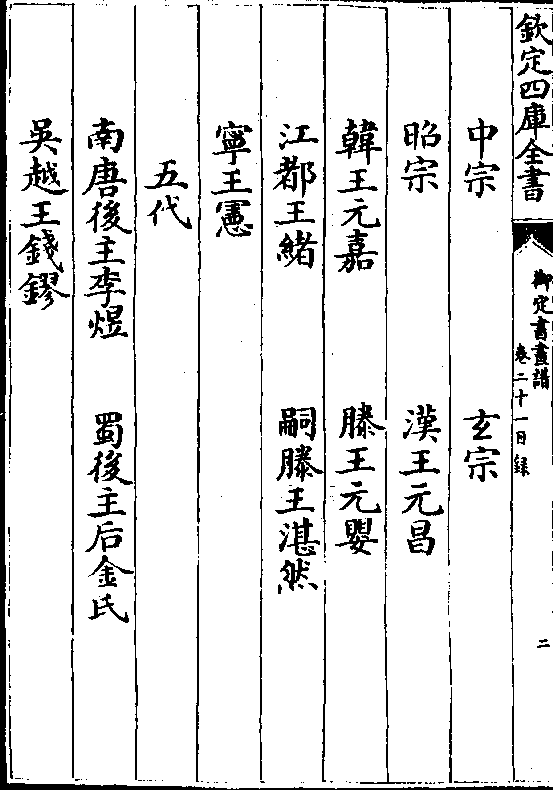 欽定四庫全書
御定書畫譜
卷二十一目録
二
中宗
玄宗
昭宗
漢王元昌
韓王元嘉
滕王元嬰
江都王緒
嗣滕王湛然
寧王憲
五代
南唐後主李煜
蜀後主后金氏
吳越王錢鏐